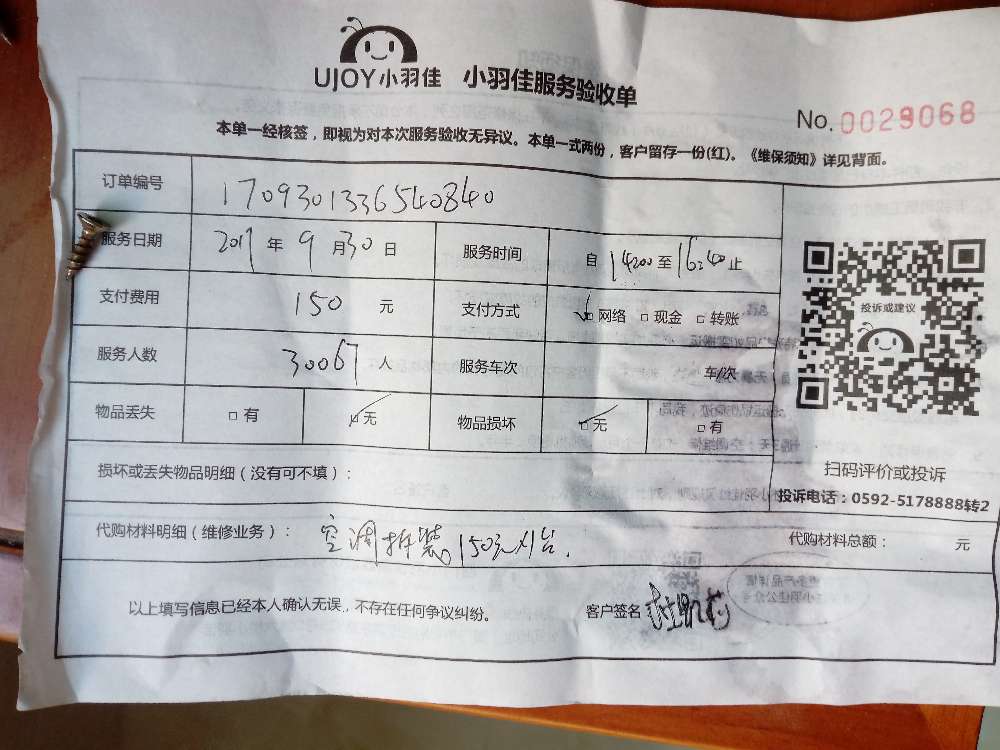 UJOY小羽佳 小羽佳服务验收单
No. 0029068
本单一经核签，即视为对本次服务验收无异议。本单一式两份，客户留存一份(红)。《维保须知》详见背面。
订单编号 1709301336540840
服务日期 2017 年 9 月 30 日 服务时间 自 14:00 至 16:40 止
支付费用 150 元 支付方式 ☑网络 □现金 □转账
服务人数 30067 人 服务车次 车/次
物品丢失 □有 ☑无 物品损坏 ☑无 □有
损坏或丢失物品明细（没有可不填）：
代购材料明细（维修业务）： 空调拆装 150元X1台. 代购材料总额： 元
以上填写信息已经本人确认无误，不存在任何争议纠纷。 客户签名
投诉或建议
扫码评价或投诉
投诉电话：0592-5178888转2